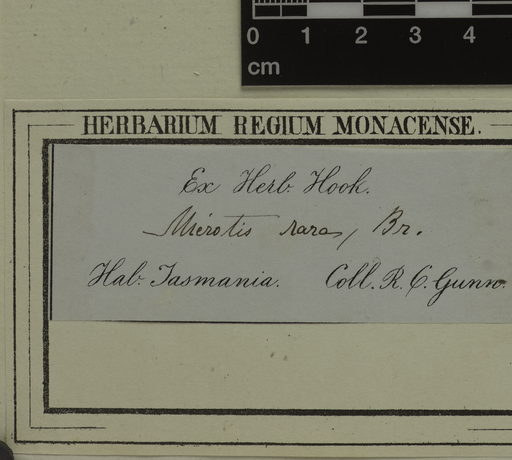 0 1 2 3 4
cm
HERBARIUM REGIUM MONACENSE.
Ex Herb. Hook.
Microtis rara, Br.
Hab. Tasmania. Coll. R. C. Gunn.